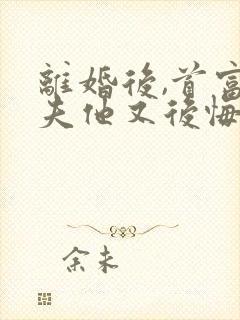 離婚後,首富
夫他又後悔
余未